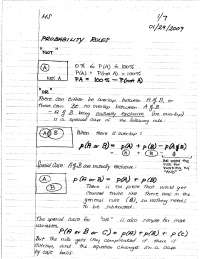 HS
1/7
01/29/2009
PROBABILITY RULES
"NOT"
A
not A
0% ≤ P(A) ≤ 100%
P(A) + P(not A) = 100%
PA = 100% - P(not A)
"OR"
There can either be overlap between A & B, or
there can be no overlap between A & B
- A & B being mutually exclusive (no overlap)
is a special case of the following rule:
A B
When there is overlap:
P(A or B) = P(A) + P(B) - P(A&B)
Special Case: A & B are mutually exclusive:
A
B
P(A or B) = P(A) + P(B)
There is no piece that would get
counted twice like there was in the
general rule, so nothing needs
to be subtracted.
The special case for "OR" is also simple for more
variables
P(A or B or C) = P(A) + P(B) + P(C)
But the rule gets very complicated if there is
overlap, and the equation changes on a case
by case basis.